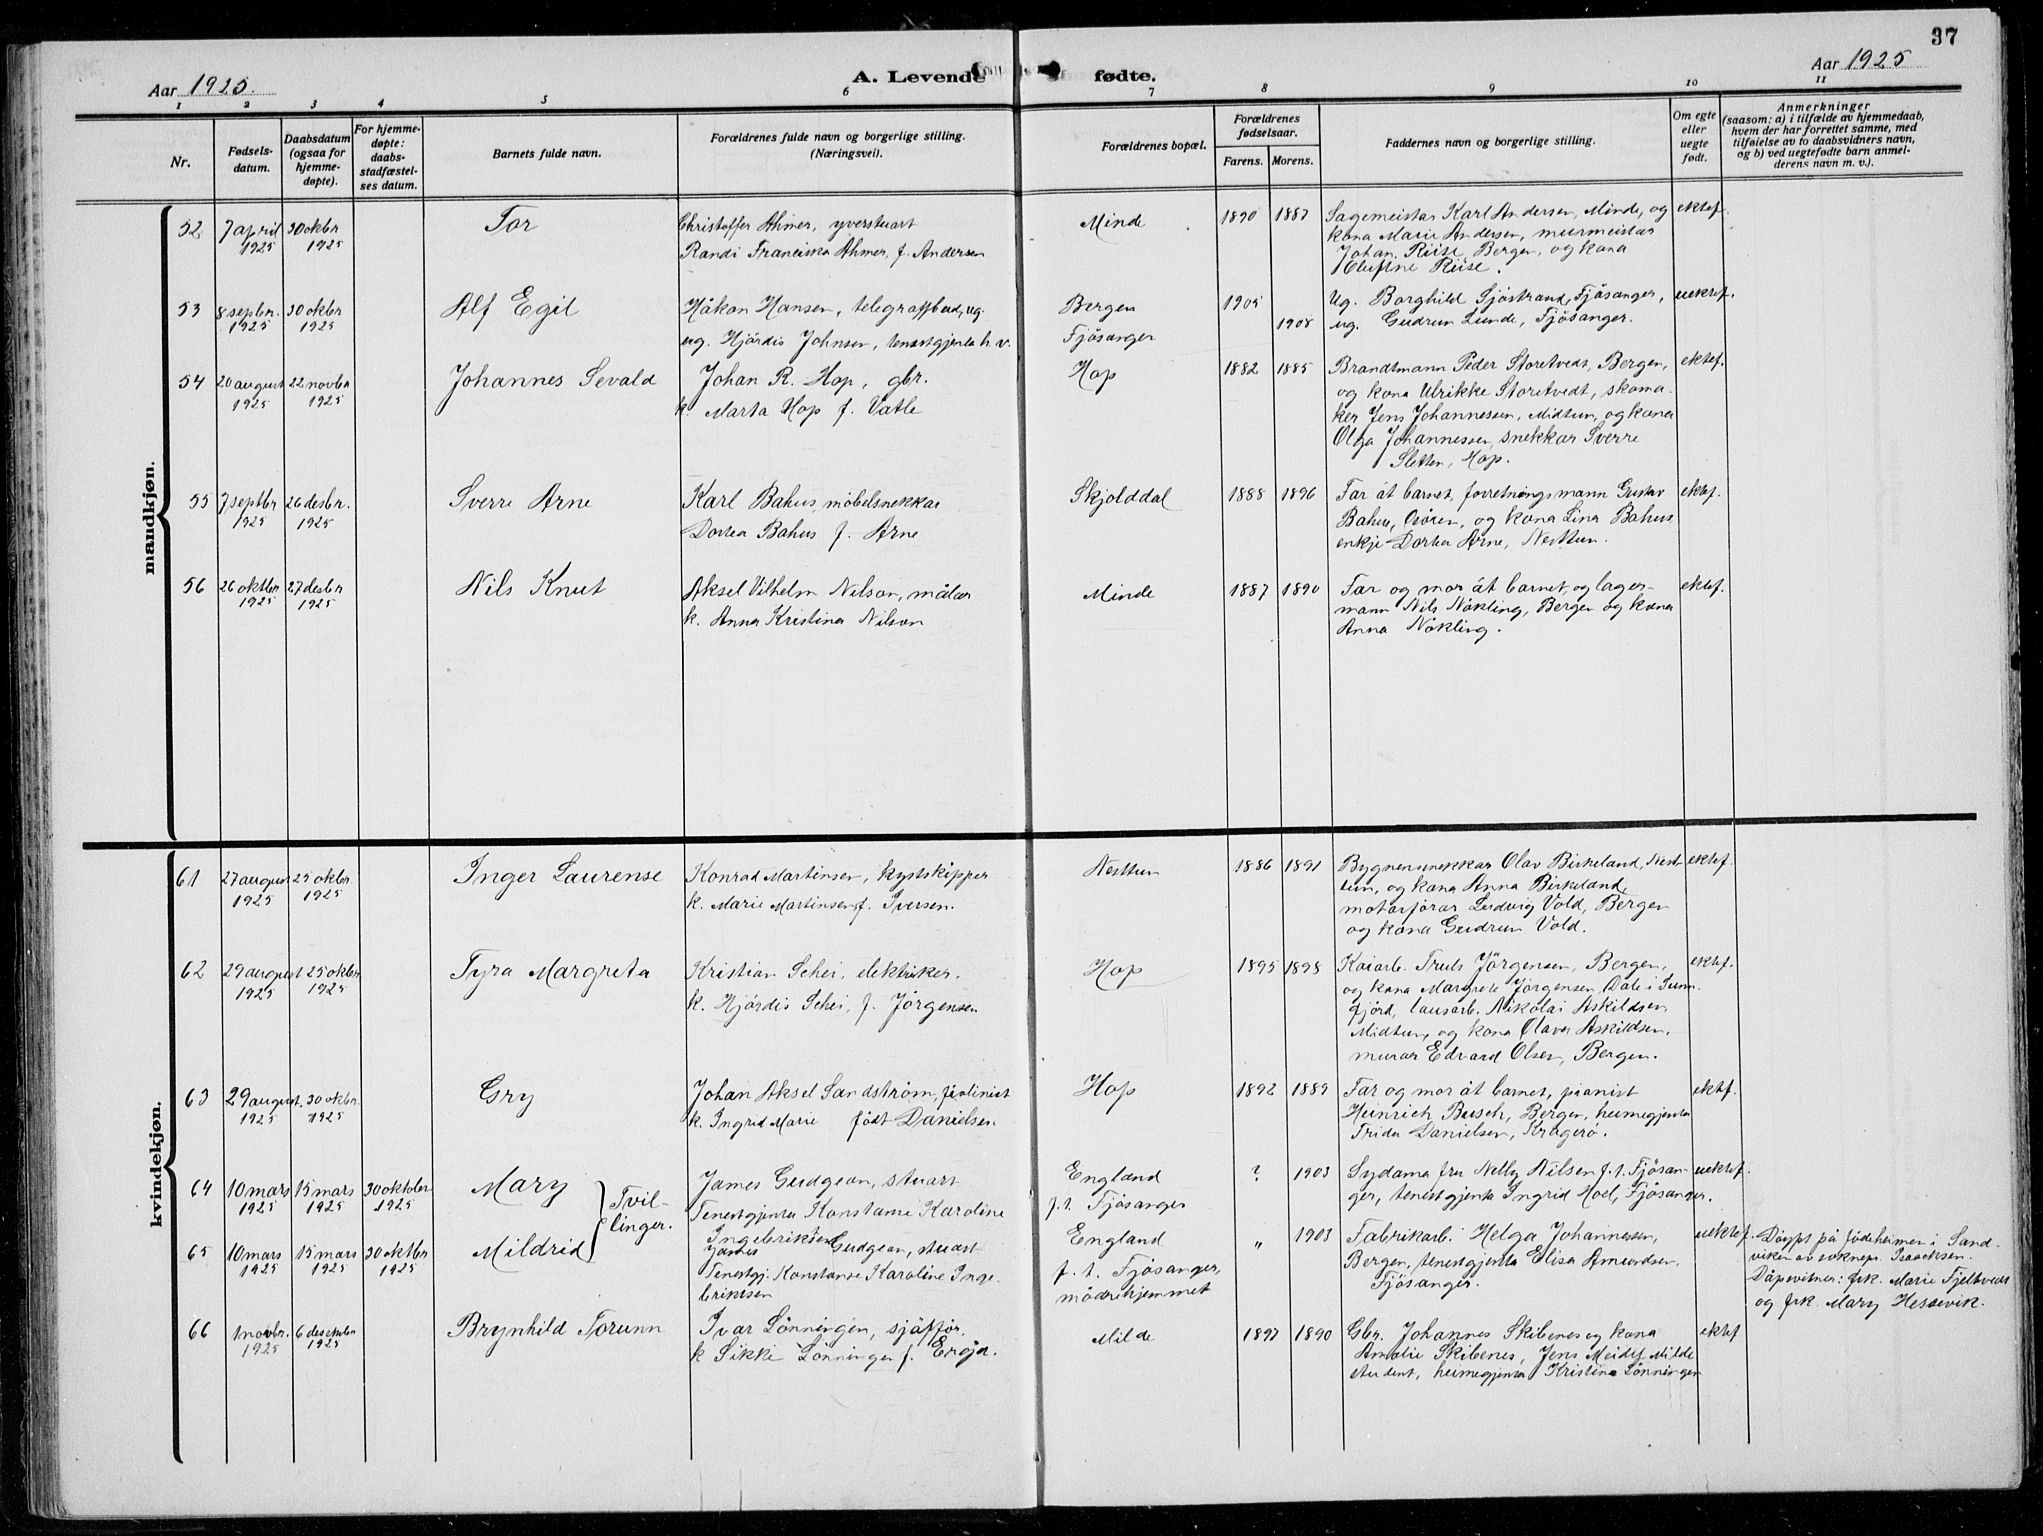 37
Aar 1925.
A. Levende fødte.
Aar 1925
1 2 3 4 5 6 7 8 9 10 11
Nr.
Fødsels-
datum.
Daabsdatum
(ogsaa for
hjemme-
døpte).
For hjemme-
døpte:
daabs-
stadfæstel-
ses datum.
Barnets fulde navn.
Forældrenes fulde navn og borgerlige stilling.
(Næringsvei).
Forældrenes bopæl.
Forældrenes
fødselsaar.
Farens. Morens.
Faddernes navn og borgerlige stilling.
Om egte
eller
uegte
født.
Anmerkninger
(saasom: a) i tilfælde av hjemmedaab,
hvem der har forrettet samme, med
tilføielse av to daabsvidners navn,
og b) ved uegtefødte barn anmel-
derens navn m. v.).
mandkjøn.
52
7 april
1925
30 oktbr
1925
Tor
Christoffer Ahmer, yverstuart
Randi Franciska Ahmer, f. Andersen
Minde
1890 1887
Sagemeistar Karl Andersen, Minde, og
kona Marie Andersen, murmeistar
Johan Riise, Bergen, og kona
Riise.
ektef.
53
8 septbr.
1925
30 oktbr
1925
Alf Egil
Håkon Hansen, telegrafbud, ug.
ug. Hjördis Johnsen, tenestgjenta h. v.
Bergen
Fjösanger
1905
1908
Ug. Borghild Sjöstrand, Fjösanger,
ug. Gudrun Lunde, Fjösanger.
uektef.
54
20 august
1925
22 novbr
1925
Johannes Sevald
Johan R. Hop, gbr.
k. Marta Hop f. Vatle
Hop
1882 1885
Brandtmann Peder Storetvedt, Bergen,
og kona Ulrikke Storetvedt, skoma-
ker Jens Johannessen, Midtun, og kona
Olga Johannessen, snekkar Sverre
Sletten, Hop.
ektef.
55
7 septbr
1925
26 desbr.
1925
Sverre Arne
Karl Bahus, möbelsnekkar
Dortea Bahus f. Arne
Skjolddal
1888 1896
Far åt barnet, forretningsmann Gustav
Bahus, Osören, og kona Lina Bahus
enkje Dortea Arne, Nesttun.
ektef.
56
26 oktbr
1925
27 desbr
1925
Nils Knut
Aksel Vilhelm Nilson, målar
k. Anna Kristina Nilson
Minde
1887 1890
Far og mor åt barnet, og lager-
mann Nils Nökling, Bergen og kona
Anna Nökling.
ektef.
kvindekjøn.
61
27 august
1925
25 oktbr.
1925
Inger Laurense
Konrad Martinsen, kystskipper
k. Marie Martinsen f. Iversen.
Nesttun
1886 1891
Bygnensnekkar Olav Birkeland, Nest-
tun, og kona Anna Birkeland,
motorförar Ludvig Vold, Bergen
og kona Gudrun Vold.
ektef.
62
29 august
1925
25 oktbr.
1925
Tyra Margreta
Kristian Schei, elektriker.
k. Hjördis Schei, f. Jörgensen
Hop
1895 1898
Kaiarb. Truls Jörgensen, Bergen,
og kona Margrete Jörgensen, Dale i Sunn-
fjord, lausarb. Nikolai Askildsen,
Midtun, og kona Olava Askildsen,
murar Edvard Olsen, Bergen.
ektef.
63
29 august.
1925
30 oktbr.
1925
Gry
Johan Aksel Sandström, fiolinist
k. Ingrid Marie födt Danielsen
Hop
1892 1889
Far og mor åt barnet, pianist
Heinrich Busch, Bergen, heimegjenta
Frida Danielsen, Kragerö.
ektef.
64
10 mars
1925
15 mars
1925
30 oktober
1925
Mary
Tvil-
linger.
James Gudgeon, stuart
Tenestgjenta Konstanse Karoline
Ingebriktsen
England
f. t. Fjösanger
? 1903
Sydama fru Nelly Nilsen f. t. Fjösan-
ger, tenestgjenta Ingrid Hoel, Fjösanger.
uektef.
65
10 mars
1925
15 mars
1925
30 oktbr
1925
Mildrid
James Gudgeon, stuart
Tenestgj. Konstanse Karoline Inge-
briktsen
England
f. t. Fjösanger,
mödrehjemmet
„ 1903
Fabrikarb. Helga Johannessen,
Bergen, tenestgjenta Elisa Amundsen,
Fjösanger.
uektef.
Döypt på födeheimen i Sand-
viken av soknepr. Isacksen.
Dåpsvitner: frk. Marie Fjeltvedt
og frk. Mary Hessevik.
66
1 novbr.
1925
6 desember
1925
Brynhild Torunn
Ivar Lönningen, sjåffør,
k Sikki Lönningen f. Ergja.
Milde
1897 1890
Gbr. Johannes Skibenes og kona
Amalie Skibenes, Jens Meidel Milde
student, heimegjenta Kristina Lönningen
ektef